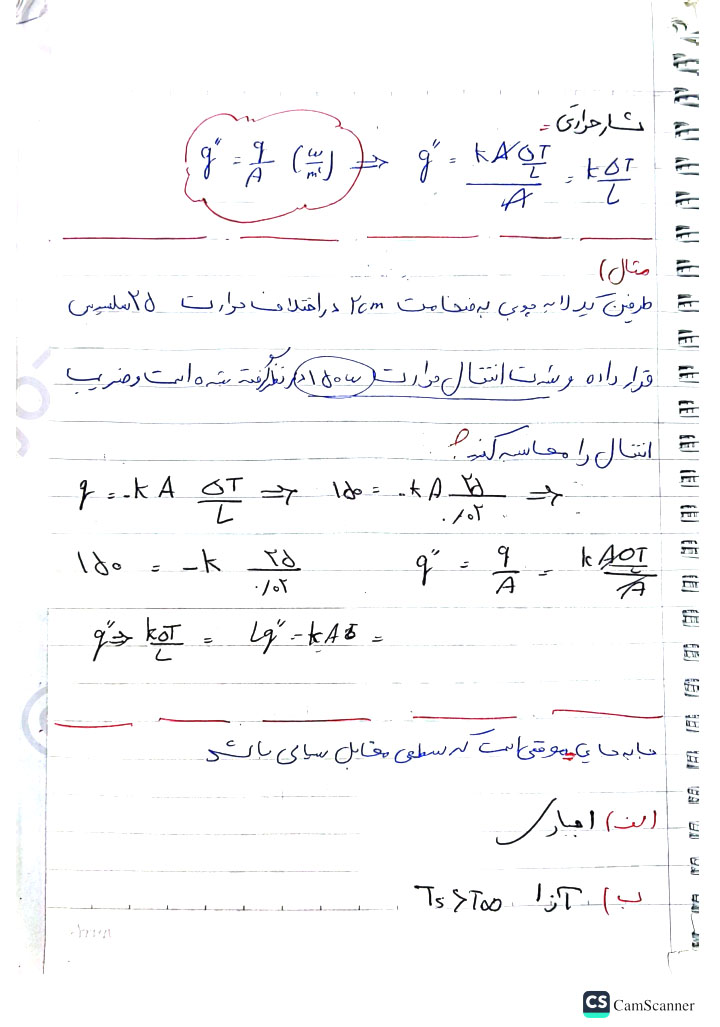 شار حرارتی =
q″ = q/A (w/m²) ⇒ q″ = kA ΔT/L / A = kΔT/L
مثال)
طرفین یک لایه چوبی به ضخامت ۲cm در اختلاف حرارت ۲۵ سلسیوس
قرار داده و شدت انتقال حرارت ۱۵۰w در نظر گرفته شده است و ضریب
انتقال را محاسبه کنید؟
q = -kA ΔT/L ⇒ ۱۵۰ = -kA ۲۵/۰/۰۲ ⇒
۱۵۰ = -k ۲۵/۰/۰۲ q″ = q/A = kAΔT/L / A
q″ ⇒ kΔT/L = Lq″ = kAδ =
جابه جایی موقعی است که سطحی مقابل سیالی باشد
الف) اجباری
ب) آزاد Ts > T∞
CS CamScanner